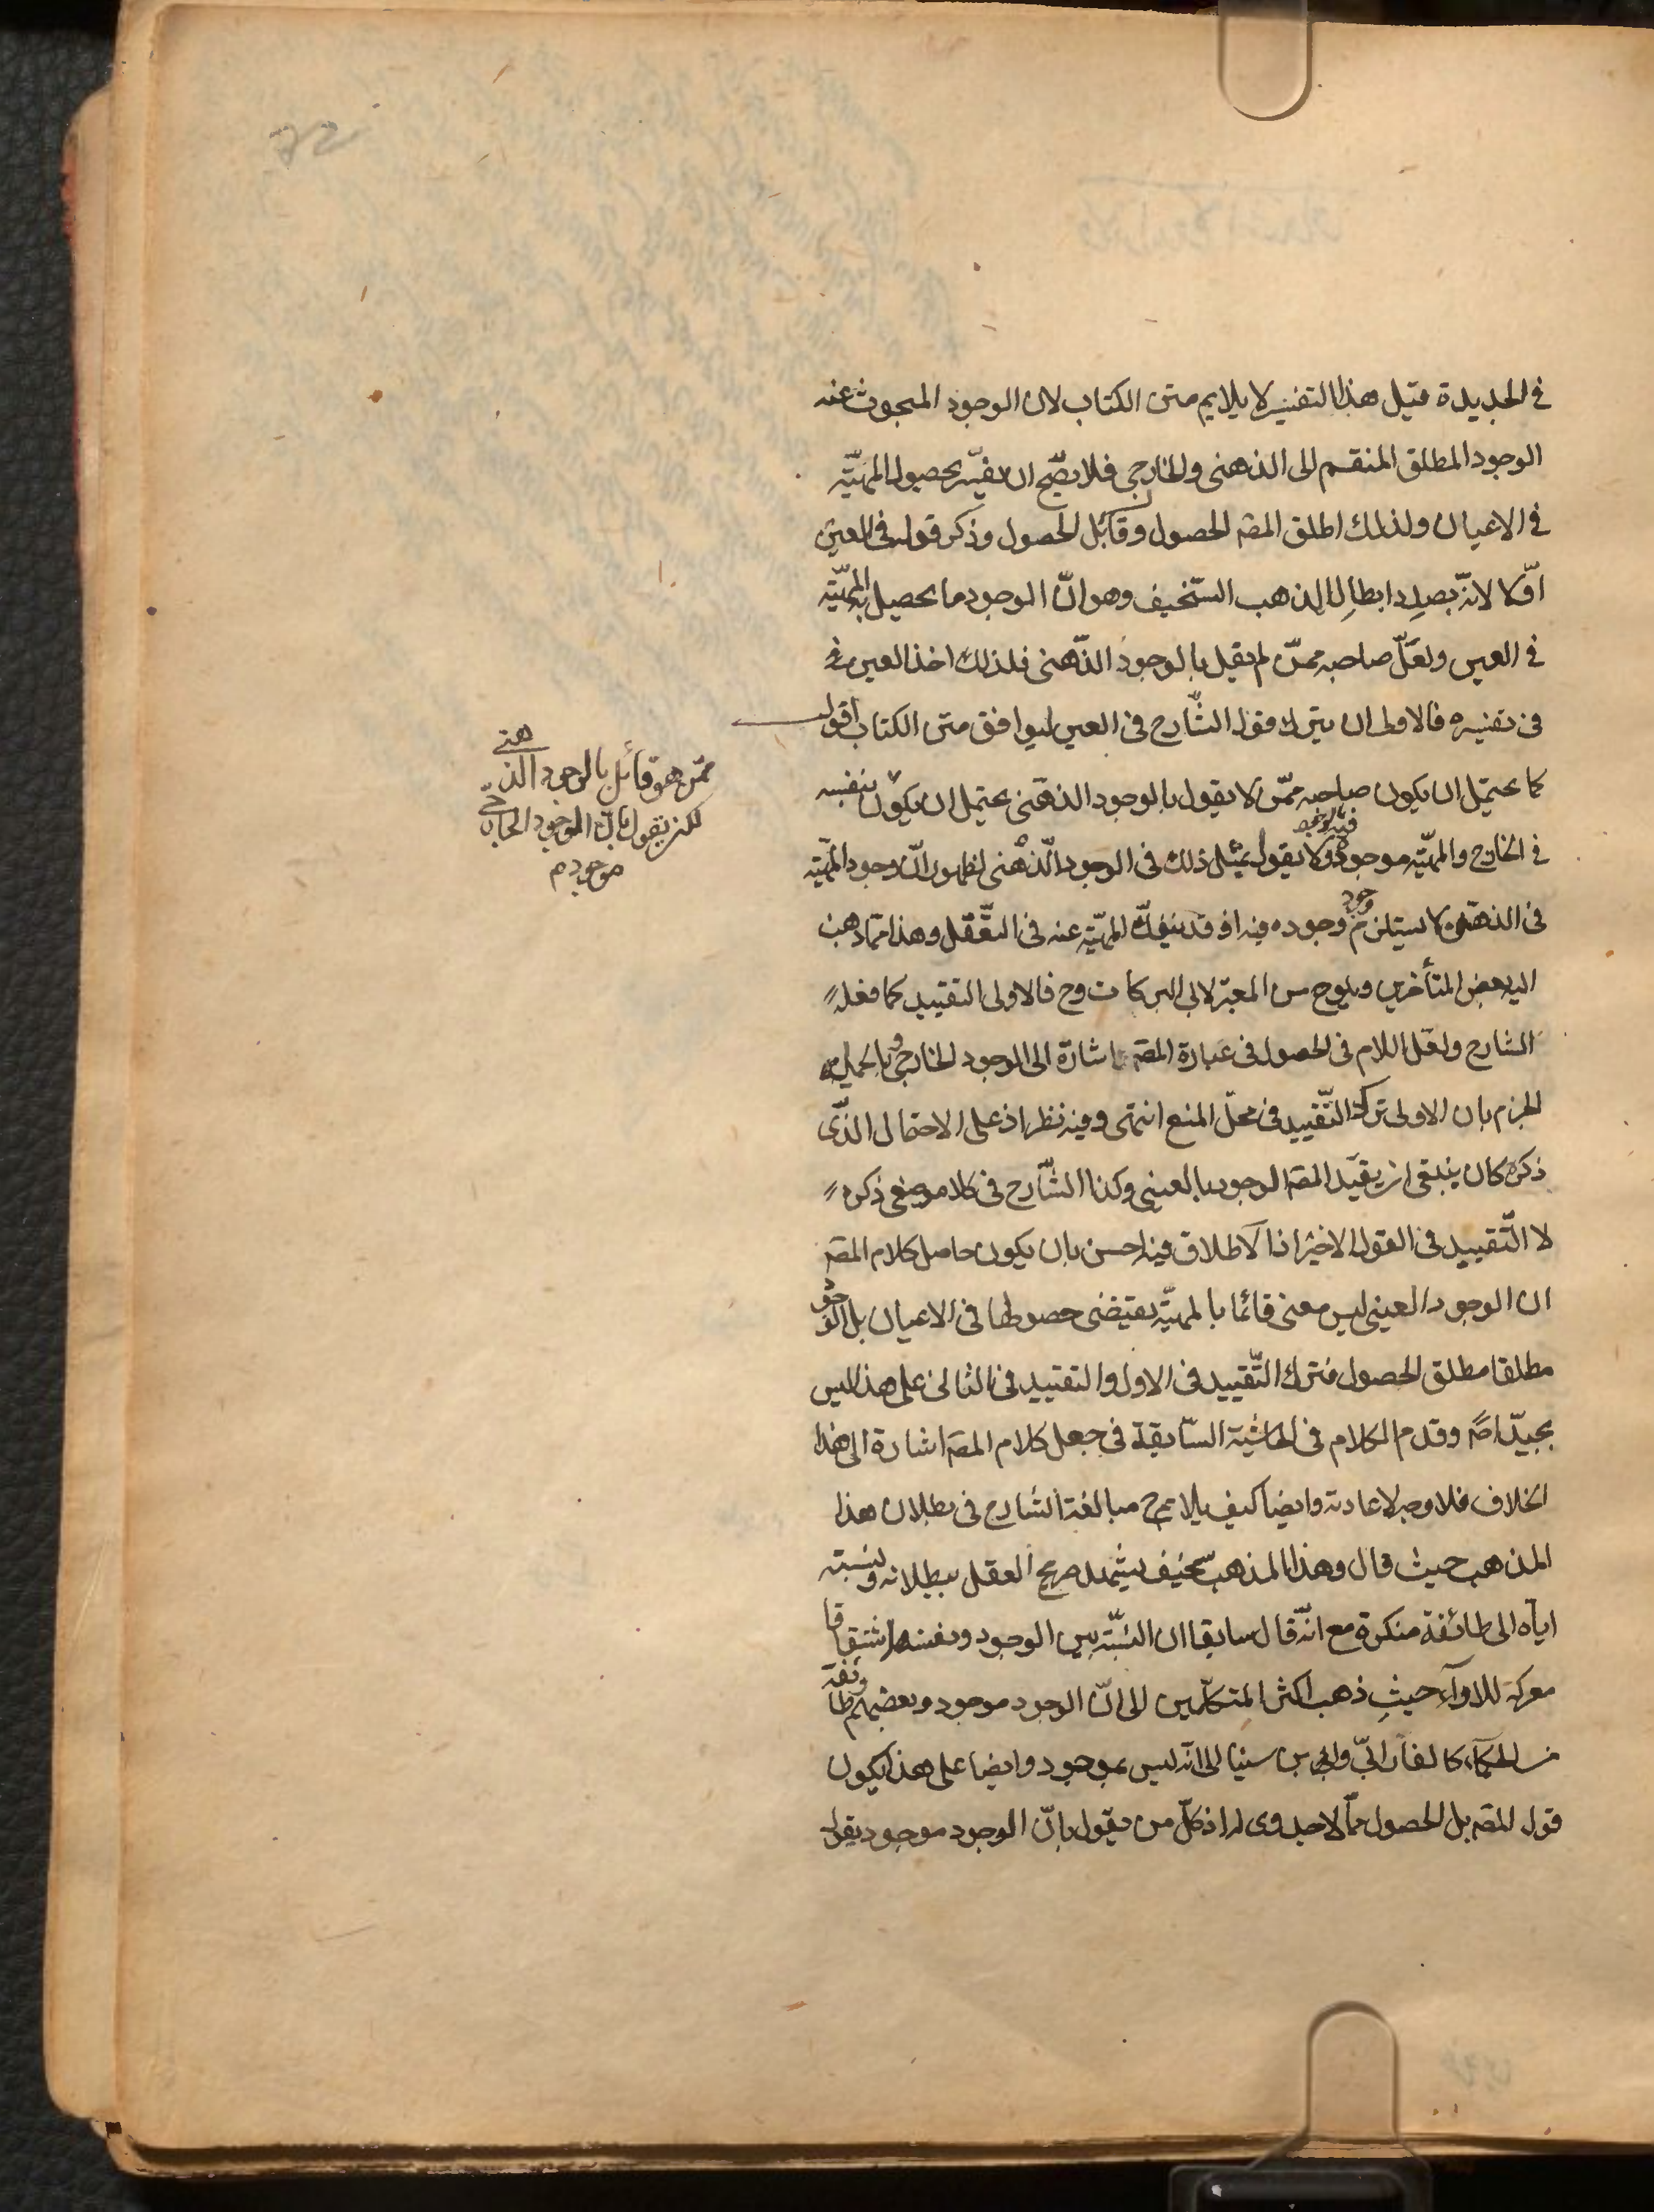 في الجديدة قيل هذا التفسير لا يلايم متن الكتاب لان الوجود المبحوث عنه
الوجود المطلق المنقسم الى الذهنى والخارجى فلا يصّح ان يفسّر بحصول المهيّة
في الاعيان ولذلك اطلق المصَ الحصول وقابل الحصول وذكر قوله في العين
اوّلا لانّه بصدد ابطال المذهب السّخيف وهو انّ الوجود ما يحصل به المهيّة
في العين ولعّل صاحبه ممّن لم يقل بالوجود الذّهنى فلذلك اخذ العين
فى تفسيره فالاولى ان يترك قول الشّارح فى العين ليوافق متن الكتاب اقول
كما يحتمل ان يكون صاحبه ممّن لا يقول بالوجود الذهنى يحتمل ان يكون بنفسه
ممّن هو قائل بالوجود الذهنى
لكن يقول بانّ الوجود الخارجّى
موجود م
في الخارج والمهيّة موجودة فيه بوجوده ولا يقول بمثل ذلك فى الوجود الذّهنى لظهور انّ وجود المهيّة
فى الذهن لا يستلزم وجود وجوده فيه اذ قد ينفكّ المهيّة عنه فى التعّقل وهذا ممّا ذهب
اليه بعض المتأخرين ويلوح من المعتبر لابى البركات وح فالاولى التقييد كما فعله
الشارح ولعّل اللام فى الحصول فى عبارة المصَ اشارة الى الوجود الخارجى وبالجملة
الجزم بان الاولى ترك التّقييد فى محلّ المنع انتهى وفيه نظر اذ على الاحتمال الذّى
ذكره كان ينبغى ان يقيّد المصَ الوجود بالعينى وكذا الشّارح فى كلا موضعى ذكره
لا التّقييد فى القول الاخير اذ الاطلاق فيه احسن بان يكون حاصل كلام المصَ
ان الوجود العينى ليس معنى قائما بالمهيّة يقتضى حصولها فى الاعيان بل الوجود
مطلقا مطلق الحصول فترك التّقييد فى الاول والتقييد فى الثانى على هذا ليس
بجيّد اصَ وقد مر الكلام فى الحاشية السّابقة فى جعل كلام المصَ اشارة الى هذا
الخلاف فلا وجه لاعادته وايضا كيف يلايم ح مبالغة الشارح فى بطلان هذا
المذهب حيث قال وهذا المذهب سخيف يشهد صريح العقل ببطلانه ونسبته
ايّاه الى طائفة منكرة مع انّه قال سابقا ان النّسبة بين الوجود ونفسه اشتقاقا
معركة للاراء حيث ذهب اكثر المتكلّمين الى انّ الوجود موجود وبعضهم وطائفة
من الحكماء كالفارابىّ وابى بن سينا الى انّه ليس بموجود وايضا على هذا يكون
قول المصَ بل الحصول ممّا لا جدوى له اذ كلّ من يقول بانّ الوجود موجود يقول